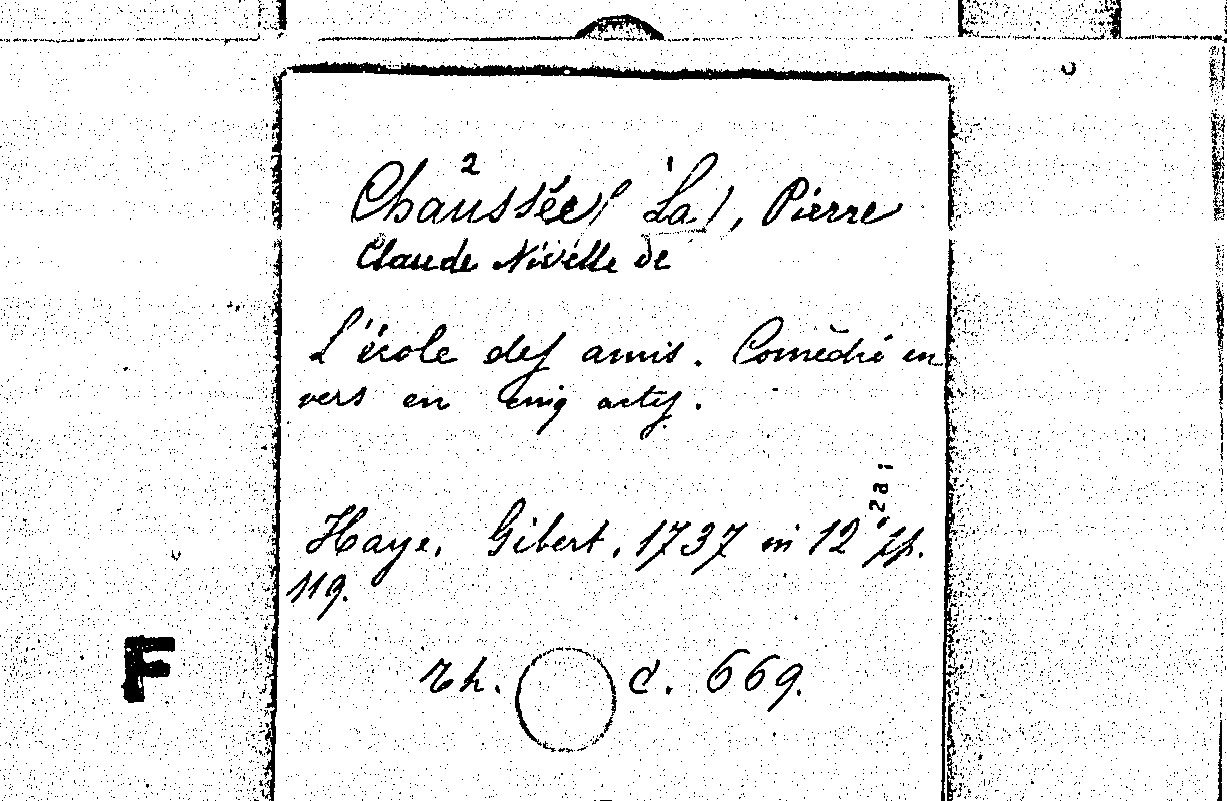 Chaussée (La), Pierre
Claude Nivelle de
L'école des amis. Comédie en
vers en cinq actes.
Haye, Gibert, 1737 in 12° pp.
119.
F
d. 669.